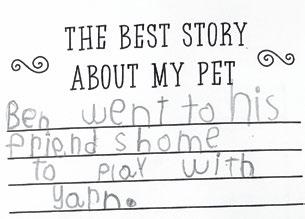 THE BEST STORY
ABOUT MY PET
Ben went to his
friend s home
to play with
yarn.